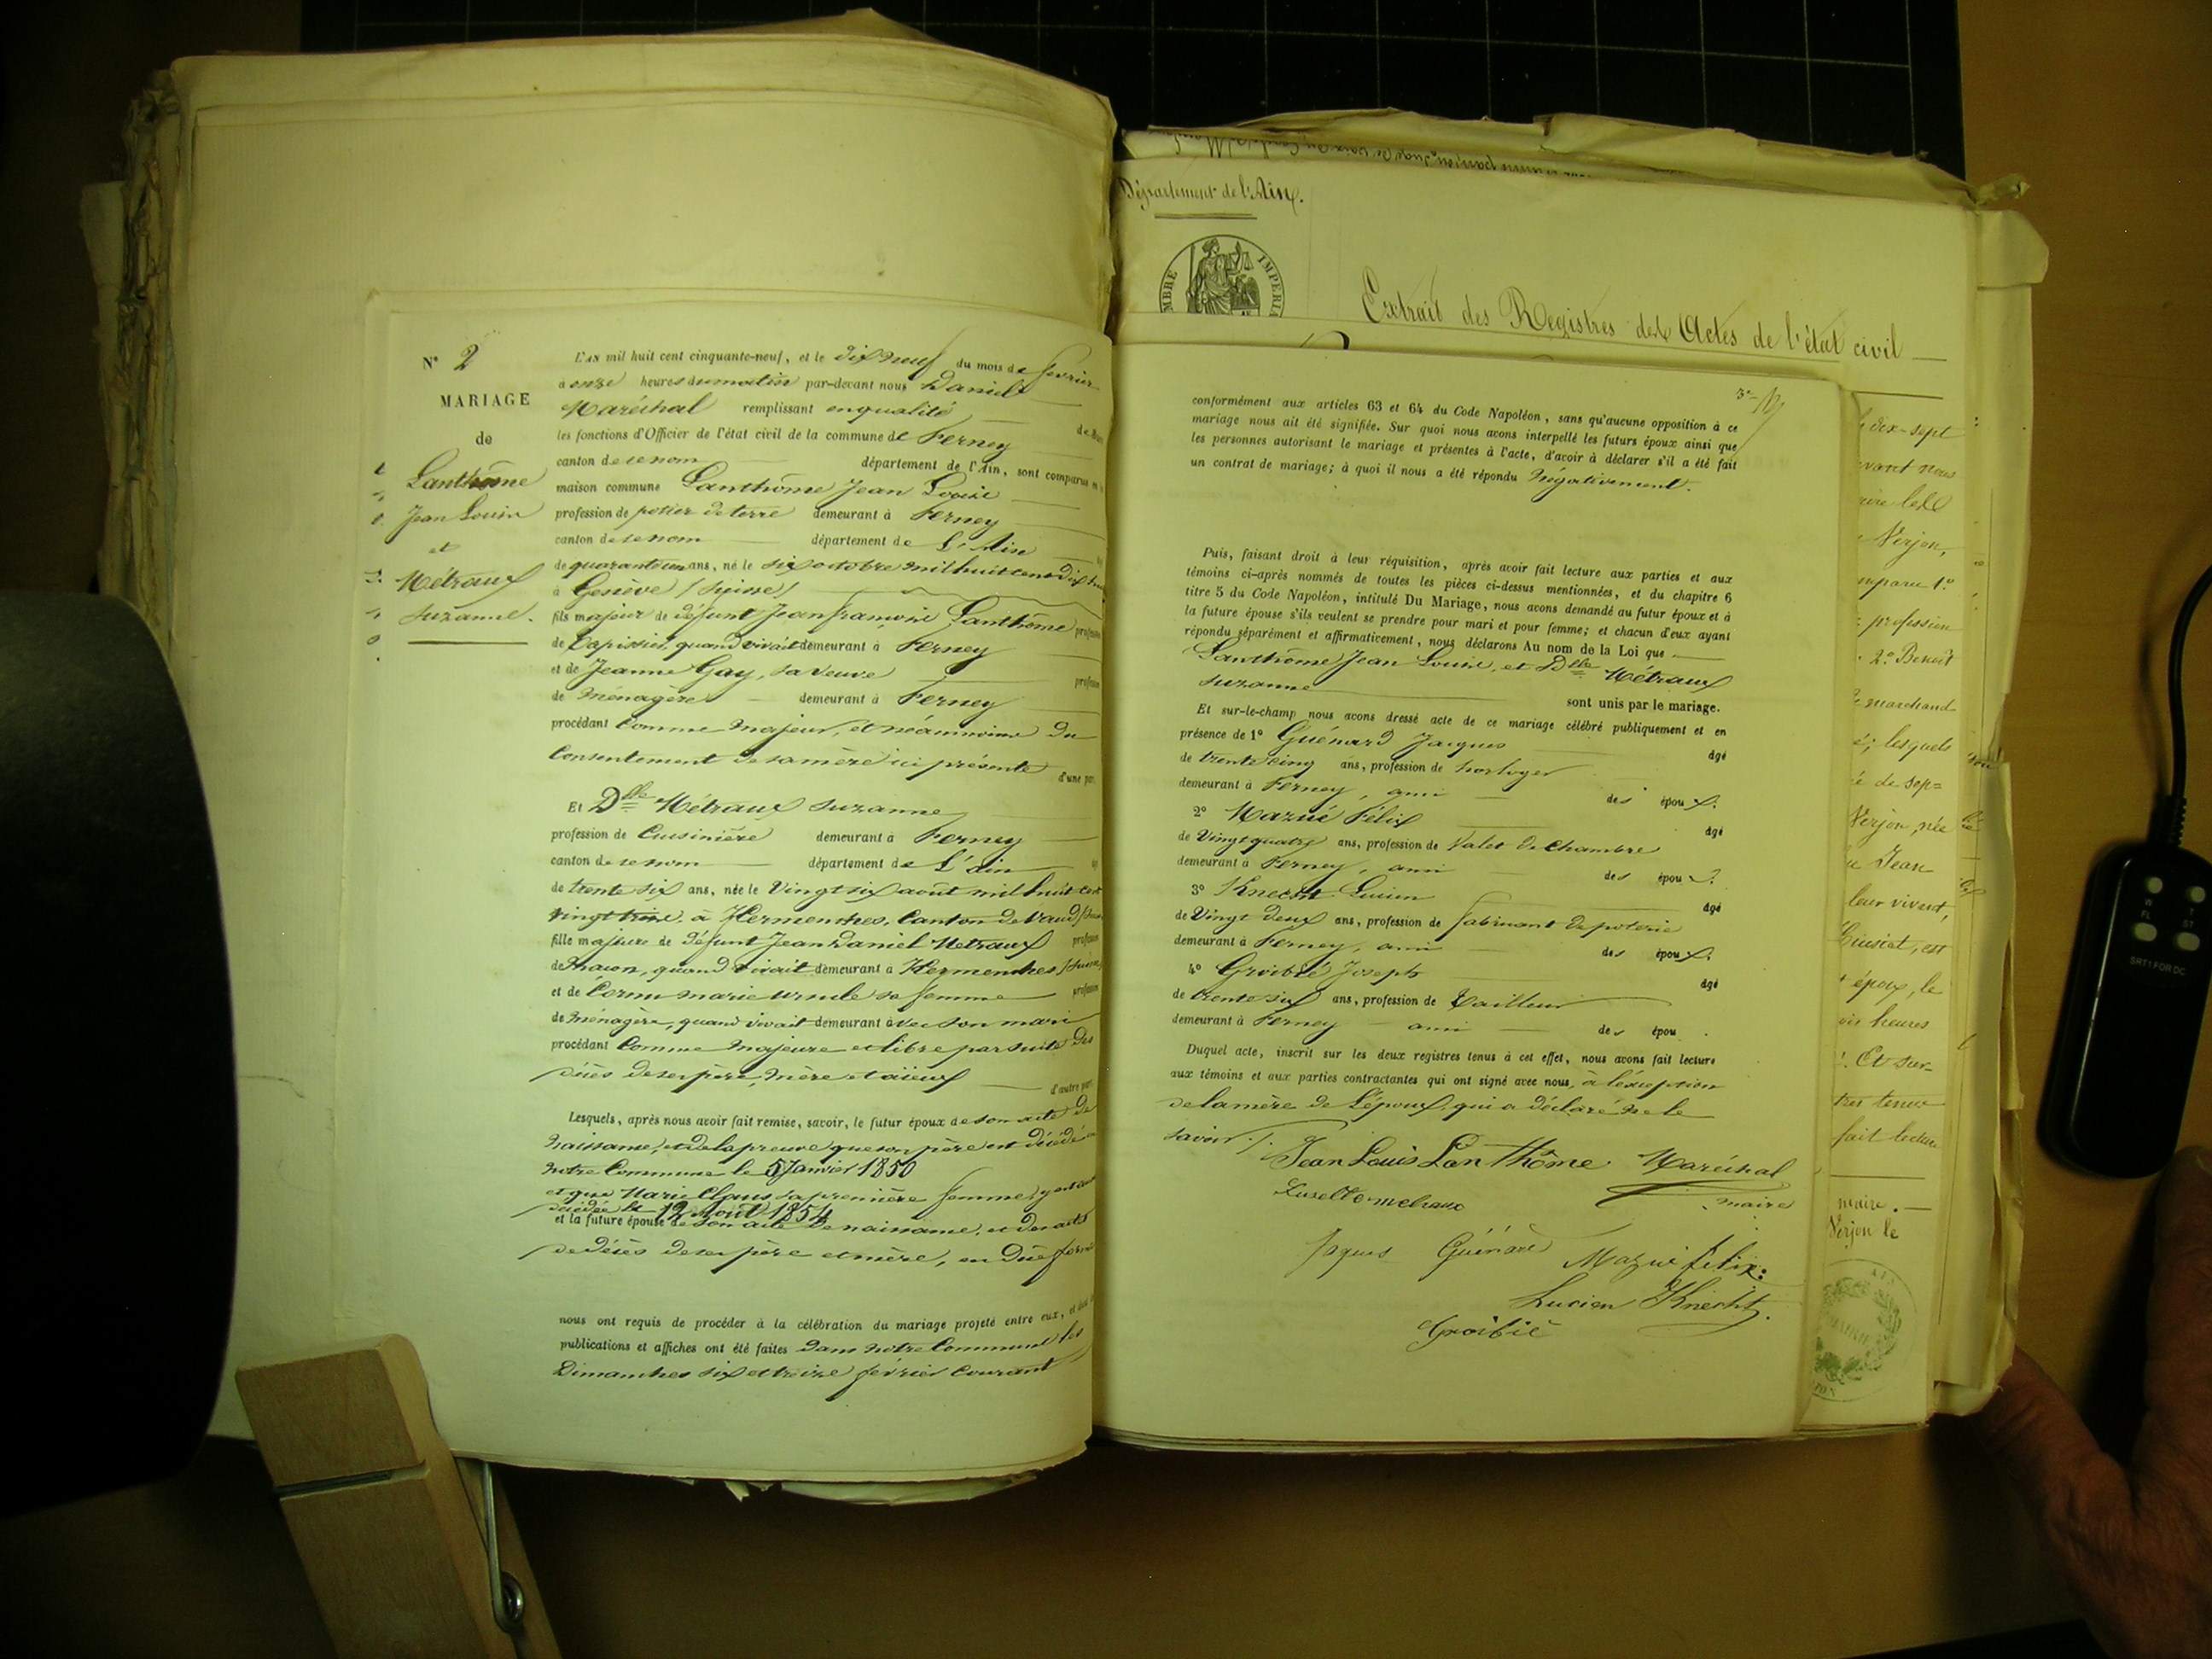 N° 2
MARIAGE
de
Lanthôme
Jean Louis
et
Métraux
Suzanne.
L'AN mil huit cent cinquante-neuf, et le dix neuf du mois de février
à onze heures du matin par-devant nous Daniel
Maréchal remplissant en qualité de Maire
les fonctions d'Officier de l'état civil de la commune de Ferney
canton de ce nom département de l'Ain, sont comparus en la
maison commune Lanthôme Jean Louis
profession de potier de terre demeurant à Ferney
canton de ce nom département de L'Ain
de quarante un ans, né le six octobre mil huit cent dix
à Genève (Suisse)
fils majeur de défunt Jean françois Lanthôme profession
de Tapissier, quand vivait demeurant à Ferney
et de Jeanne Gay, sa veuve profession
de Ménagère demeurant à Ferney
procédant Comme Majeur, et néanmoins du
Consentement de sa mère ici présente d'une part
Et Dlle Métraux Suzanne
profession de Cuisinière demeurant à Ferney
canton de ce nom département de L'ain
de trente six ans, née le Vingt six août mil huit cent
vingt à Hermenches, Canton de Vaud (Suisse
fille majeure de défunt Jean Daniel Metraux profession
de Maçon, quand vivait demeurant à Hermenches (Suisse)
et de Cornu marie ursule sa femme profession
de Ménagère, quand vivait demeurant avec son mari
procédant Comme Majeure et libre par suite des
décès de ses père, mère et aïeux d'autre part
Lesquels, après nous avoir fait remise, savoir, le futur époux de son acte de
naissance, et de la preuve que son père est décédé en
notre Commune le 5 Janvier 1850
et que Marie sa première femme, y est aussi
décédée le 12 août 1854
et la future épouse de son acte de naissance, et des acts
de décès de ses père et mère, en due forme
nous ont requis de procéder à la célébration du mariage projeté entre eux, et dont les
publications et affiches ont été faites dans notre Commune les
Dimanches six et treize février Courant
Département de l'Ain.
TIMBRE IMPERIAL
Extrait des Registres des Actes de l'état civil
conformément aux articles 63 et 64 du Code Napoléon, sans qu'aucune opposition à ce
mariage nous ait été signifiée. Sur quoi nous avons interpellé les futurs époux ainsi que
les personnes autorisant le mariage et présentes à l'acte, d'avoir à déclarer s'il a été fait
un contrat de mariage; à quoi il nous a été répondu Négativement.
Puis, faisant droit à leur réquisition, après avoir fait lecture aux parties et aux
témoins ci-après nommés de toutes les pièces ci-dessus mentionnées, et du chapitre 6
titre 5 du Code Napoléon, intitulé Du Mariage, nous avons demandé au futur époux et à
la future épouse s'ils veulent se prendre pour mari et pour femme; et chacun d'eux ayant
répondu séparément et affirmativement, nous déclarons Au nom de la Loi que
Lanthôme Jean Louis, et Dlle Métraux
Suzanne sont unis par le mariage.
Et sur-le-champ nous avons dressé acte de ce mariage célébré publiquement et en
présence de 1° Guénard Jacques âgé
de trente cinq ans, profession de horloger
demeurant à Ferney, ami des époux.
2° Mazué Félix âgé
de Vingt quatre ans, profession de Valet de Chambre
demeurant à Ferney, ami des époux.
3° Knecht Lucien âgé
de Vingt deux ans, profession de fabricant de poterie
demeurant à Ferney, ami des époux.
4° Groibié Joseph âgé
de trente six ans, profession de Tailleur
demeurant à Ferney ami des épou.
Duquel acte, inscrit sur les deux registres tenus à cet effet, nous avons fait lecture
aux témoins et aux parties contractantes qui ont signé avec nous, à l'exception
de la mère de L'époux, qui a déclaré ne le
savoir./.
Jean Louis Lanthôme Maréchal
maire
metraux
Jaques Guénard Mazué félix
Lucien Knecht.
Groibié
dix-sept
vant nous
Verjon,
comparu 1°
profession
2° Benoit
marchand
; lesquels
de sep=
Verjon, née
Jean
leur vivant,
est
époux, le
heures
. Et sur-
tres tenus
fait lecture
maire.
Verjon le
W
FL
T
ST
SRT1 FOR DC